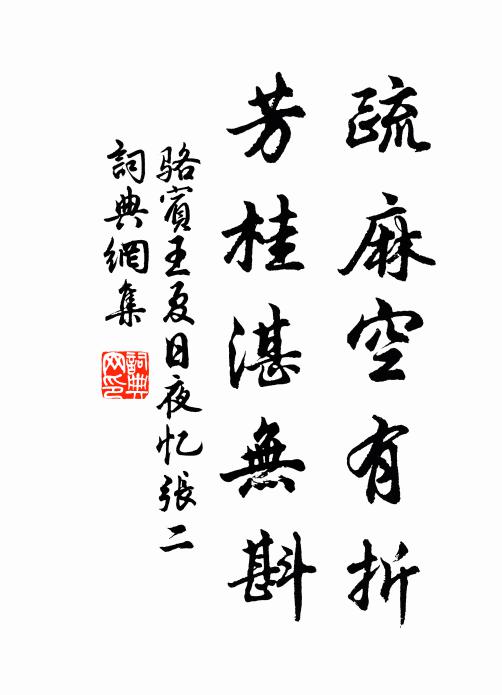 疏麻空有折
芳桂湛無斟
駱賓王夏日夜忆張二
詞典網集
詞典网印